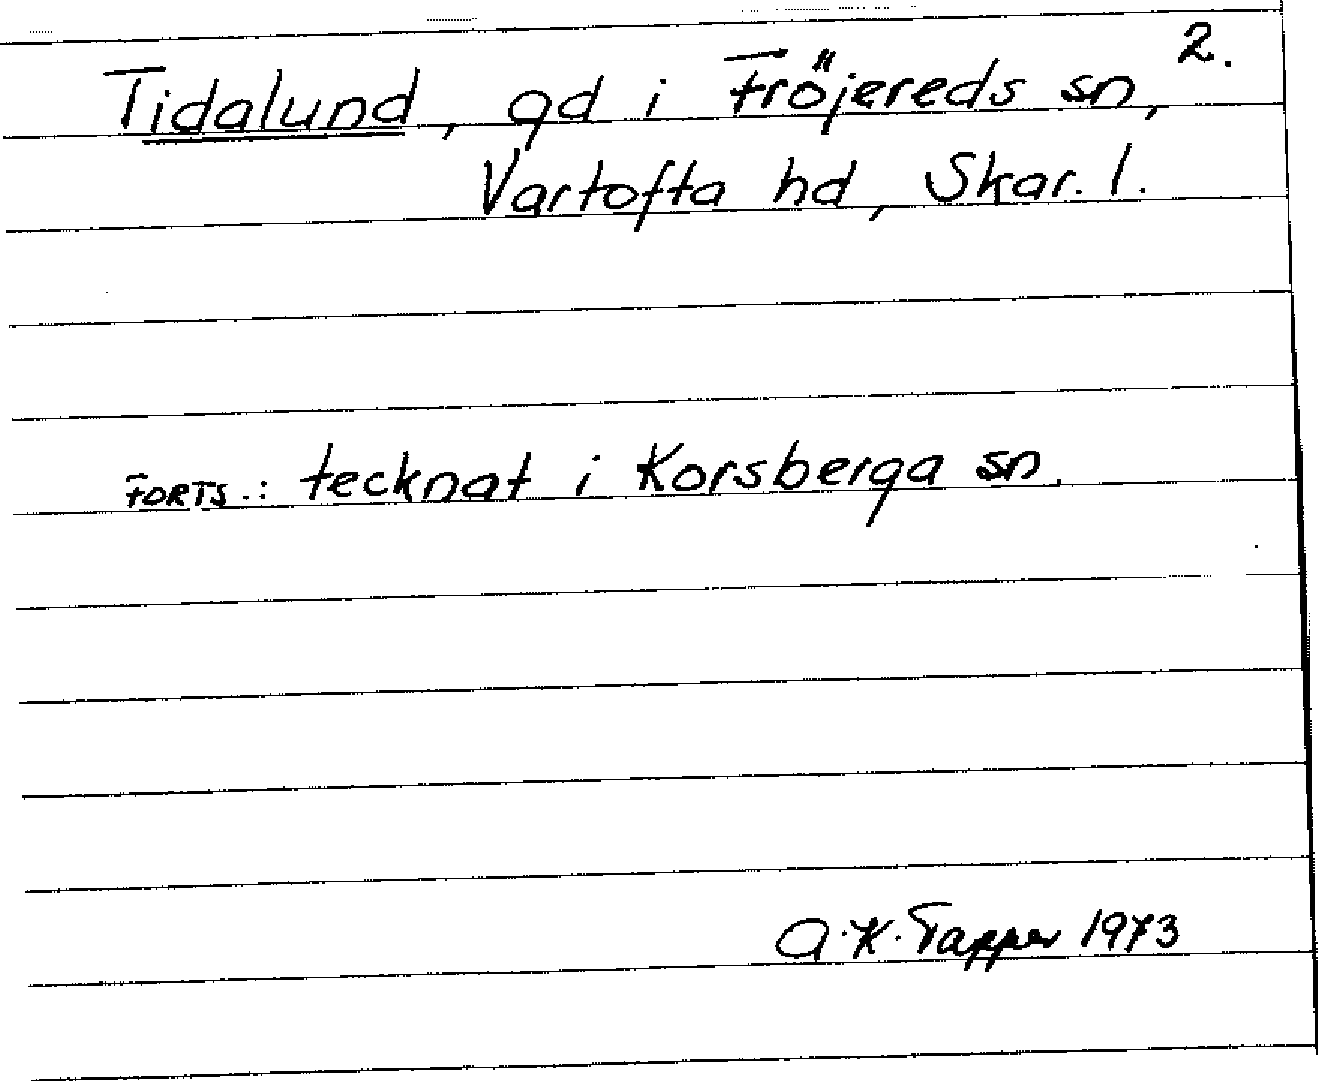 2.
Tidalund, gd i Fröjereds sn,
Vartofta hd, Skar. l.
FORTS.: tecknat i Korsberga sn.
A.K. Tapper 1973